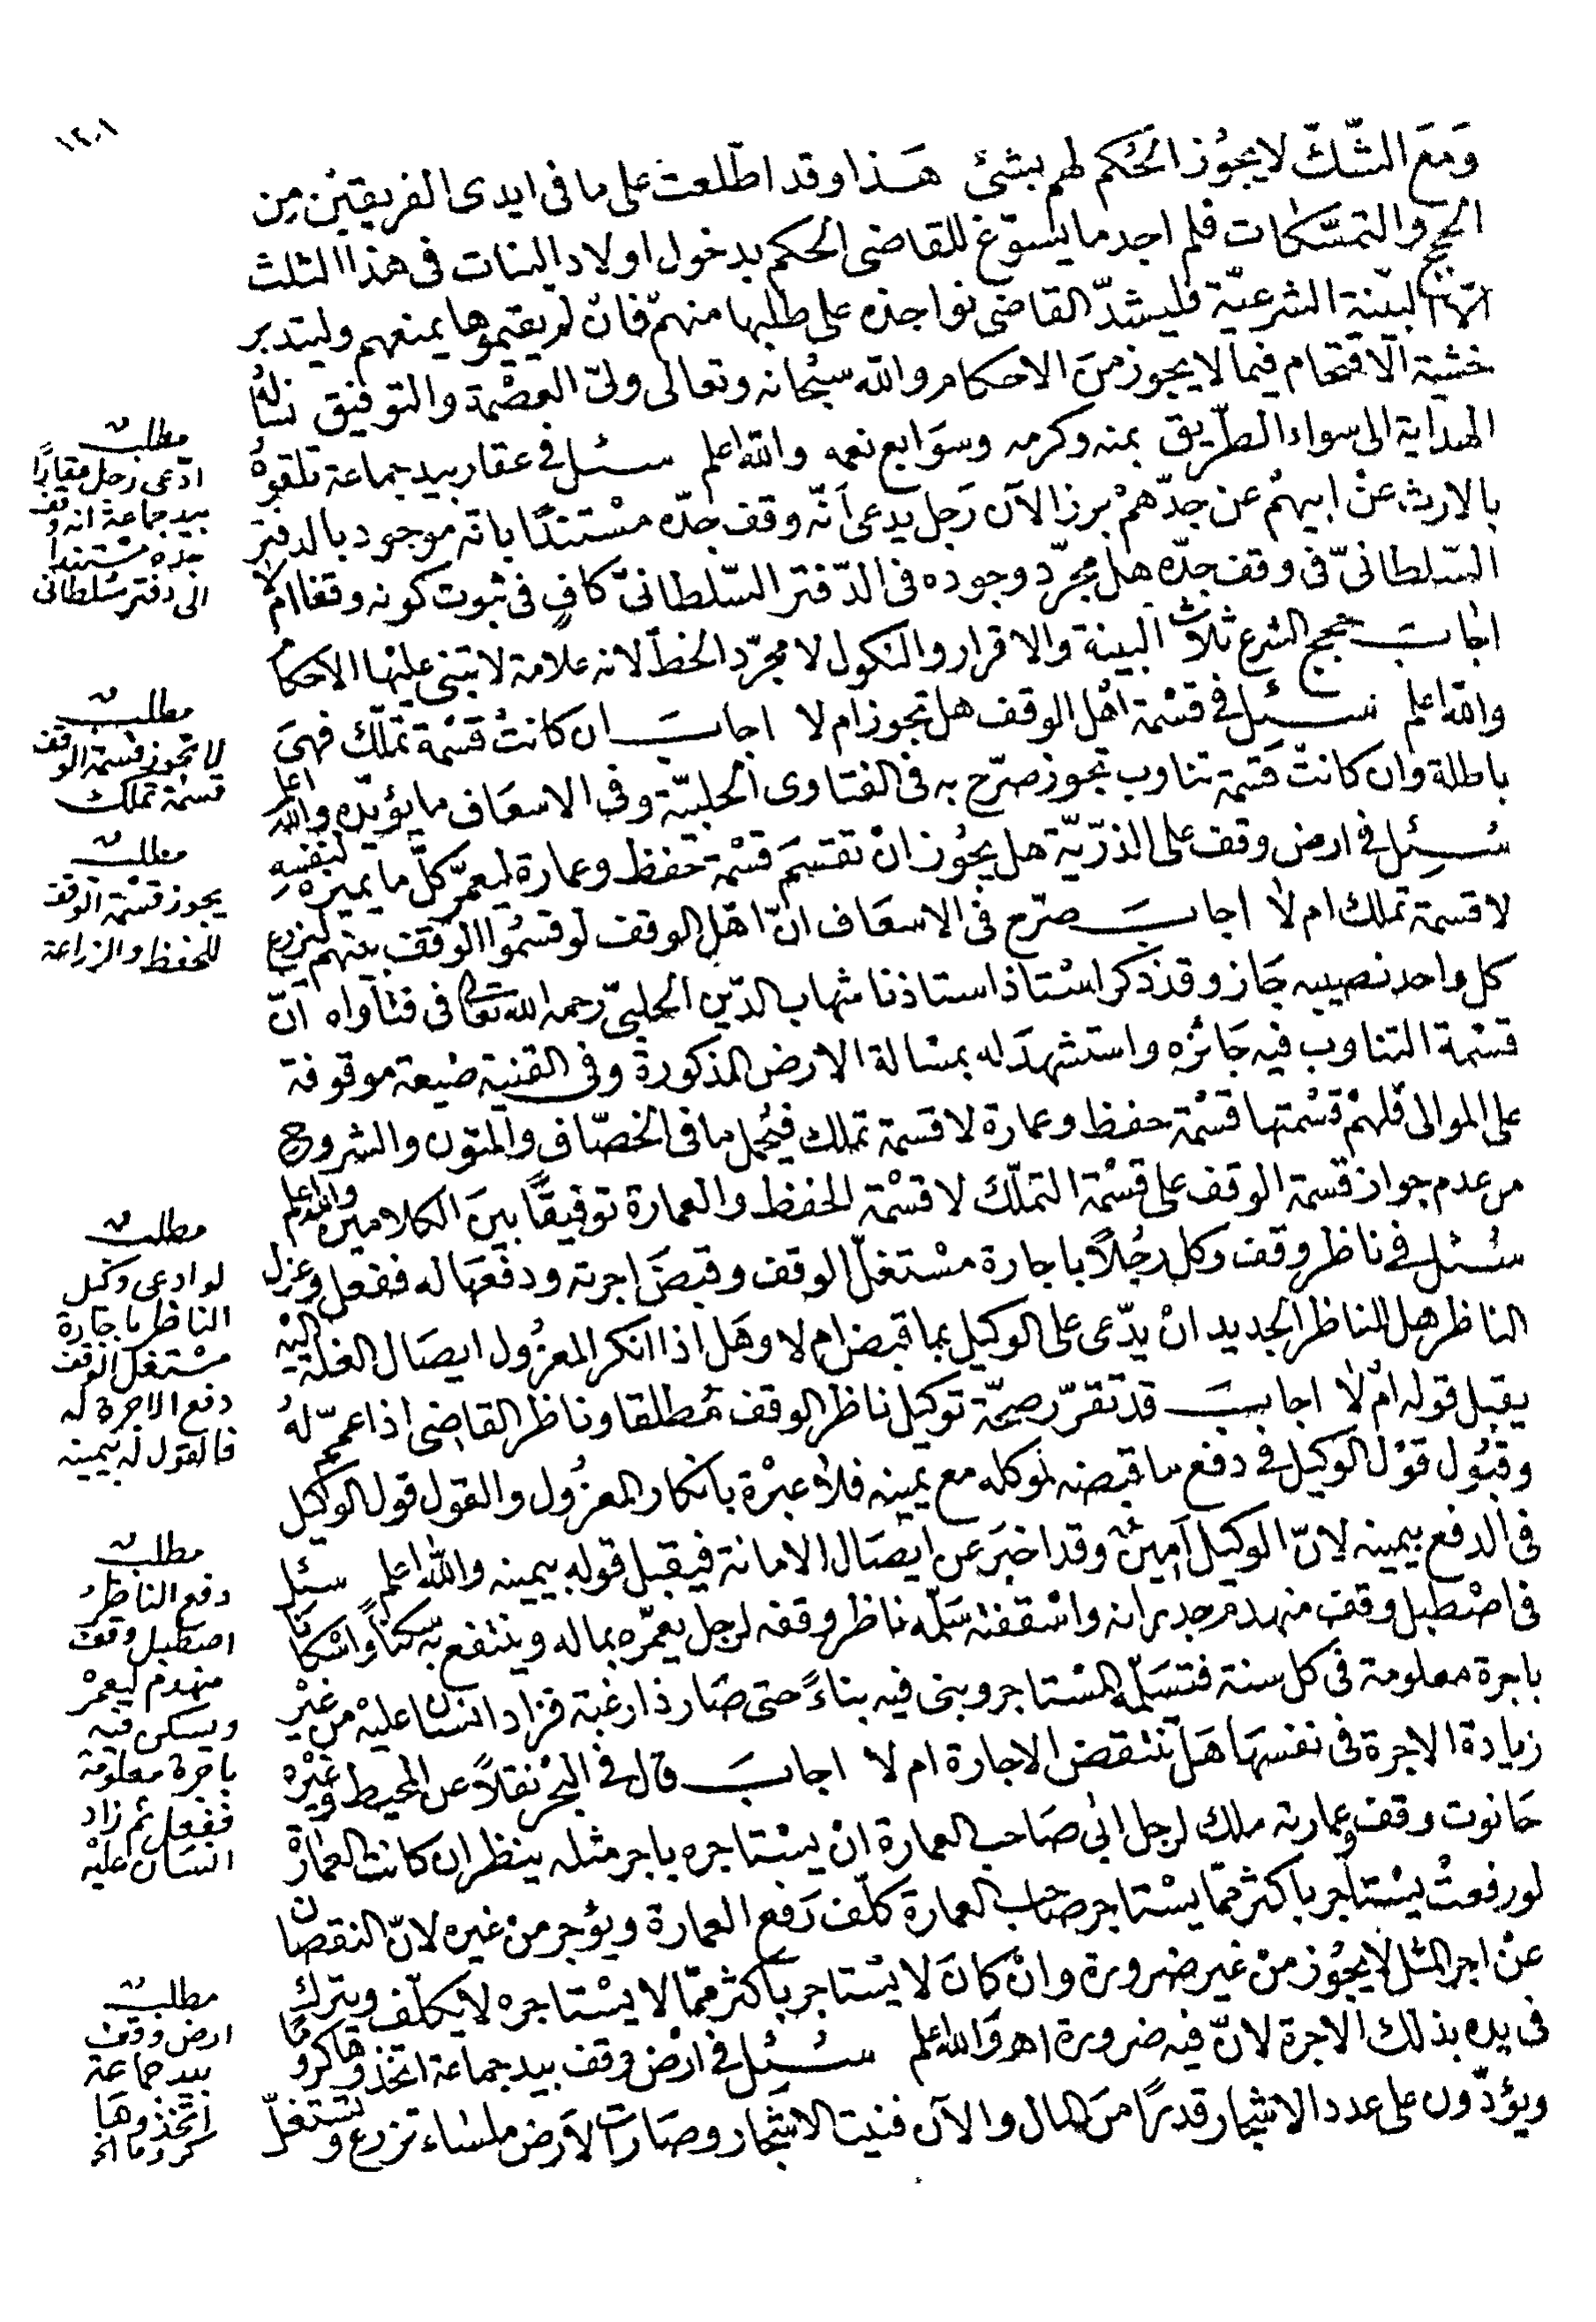 ١٢٠١
ومع الشك لا يجوز الحكم لهم بشئ هذا وقد اطلعت على ما فى ايدى الفريقين من
الحجج والتمسكات فلم اجد ما يسوغ للقاضى الحكم بدخول اولاد البنات فى هذا الثلث
الا البينة الشرعية فليشد القاضى نواجذه على طلبها منهم فان لم يقيموها يمنعهم وليتدبر
خشية الاقتحام فيما لا يجوز من الاحكام والله سبحانه وتعالى ولى العصمة والتوفيق نساله
الهداية الى سواء الطريق بمنه وكرمه وسوابع نعمه والله اعلم سئل فى عقار بيد جماعة تلقوه
بالارث عن ابيهم عن جدهم برز الآن رجل يدعى انه وقف جده مستندا بانه موجود بالدفتر
السلطانى فى وقف جده هل مجرد وجوده فى الدفتر السلطانى كاف فى ثبوت كونه وقفا ام لا
اجاب حجج الشرع ثلاث البينة والاقرار والنكول لا مجرد الخط لانه علامة لا تبنى عليها الاحكام
والله اعلم سئل فى قسمة اهل الوقف هل تجوز ام لا اجاب ان كانت قسمة تملك فهى
باطلة وان كانت قسمة تناوب تجوز صرح به فى الفتاوى الحلبية وفى الاسعاف ما يؤيده والله اعلم
سئل فى ارض وقف على الذرية هل يجوز ان تقتسم قسمة حفظ وعمارة ليعمر كل ما يميزه لنفسه
لا قسمة تملك ام لا اجاب صرح فى الاسعاف ان اهل الوقف لو قسموا الوقف بينهم ليزرع
كل واحد نصيبه جاز وقد ذكر استاذ استاذنا شهاب الدين الحلبى رحمه الله تعالى فى فتاواه ان
قسمة التناوب فيه جائزه واستشهد له بمسالة الارض المذكورة وفى القنية ضيعة موقوفة
على الموالى فلهم قسمتها قسمة حفظ وعمارة لا قسمة تملك فيحمل ما فى الخصاف والمتون والشروح
من عدم جواز قسمة الوقف على قسمة التملك لا قسمة الحفظ والعمارة توفيقا بين الكلامين والله اعلم
سئل فى ناظر وقف وكل رجلا باجارة مستغل الوقف وقبض اجرته ودفعها له ففعل وعزل
الناظر هل للناظر الجديد ان يدعى على الوكيل بما قبض ام لا وهل اذا انكر المعزول ايصال الغلة اليه
يقبل قوله ام لا اجاب قد تقرر صحة توكيل ناظر الوقف مطلقا وناظر القاضى اذا عمم له
وقبول قول الوكيل فى دفع ما قبضه لموكله مع يمينه فلا عبرة بانكار المعزول والقول قول الوكيل
فى الدفع بيمينه لان الوكيل امين وقد اخبر عن ايصال الامانة فيقبل قوله بيمينه والله اعلم سئل
فى اصطبل وقف منهدم جدرانه واسقفته سلمه ناظر وقفه لرجل يعمره بماله وينتفع به سكنا واسكانا
باجرة معلومة فى كل سنة فتسلمه المستاجر وبنى فيه بناء حتى صار ذا رغبة فزاد انسان عليه من غير
زيادة الاجرة فى نفسها هل تنتقض الاجارة ام لا اجاب قال فى البحر نقلا عن المحيط وغيره
حانوت وقف وعمارته ملك لرجل ابى صاحب العمارة ان يستاجره باجر مثله ينظر ان كانت العمارة
لو رفعت يستاجر باكثر مما يستاجر صاحب العمارة كلف رفع العمارة ويؤجر من غيره لان النقصان
عن اجر المثل لا يجوز من غير ضرورة وان كان لا يستاجر باكثر مما لا يستاجره لا يكلف ويترك
فى يده بذلك الاجرة لان فيه ضرورة اهـ والله اعلم سئل فى ارض وقف بيد جماعة اتخذوها كروما
ويؤدون على عدد الاشجار قدرا من المال والآن فنيت الاشجار وصارت الارض ملساء تزرع وتستغل
مطلب
ادعى رجل عقارا
بيد جماعة انه وقف
جده مستندا
الى دفتر سلطانى
مطلب
لا تجوز قسمة الوقف
قسمة تملك
مطلب
يجوز قسمة الوقف
للحفظ والزراعة
مطلب
لو ادعى وكيل
الناظر باجارة
مستغل الوقف
دفع الاجرة له
فالقول له بيمينه
مطلب
دفع الناظر
اصطبل وقف
منهدم ليعمر
ويسكن فيه
باجرة معلومة
ففعل ثم زاد
انسان عليه
مطلب
ارض وقف
بيد جماعة
اتخذوها
كروما الخ